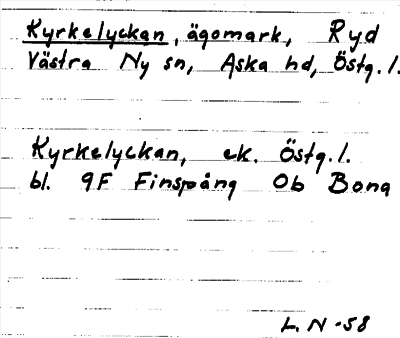 Kyrkelyckan, ägomark, Ryd
Västra Ny sn, Aska hd, Östg.l.
Kyrkelyckan, ek. Östg.l.
bl. 9F Finspång 0b Bona
L. N -58